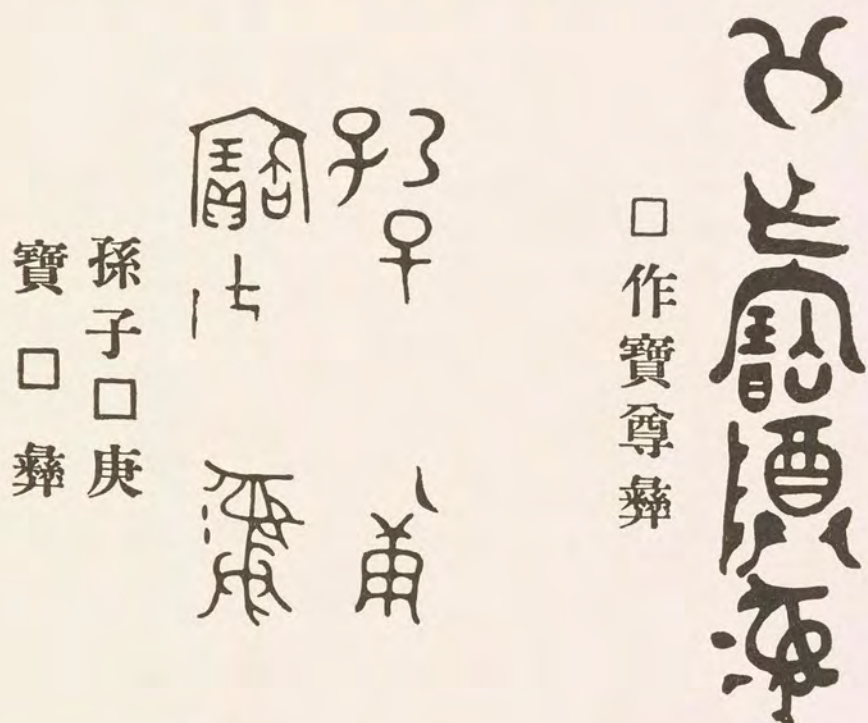 □作寶尊彝
孫子□庚
寶□彝